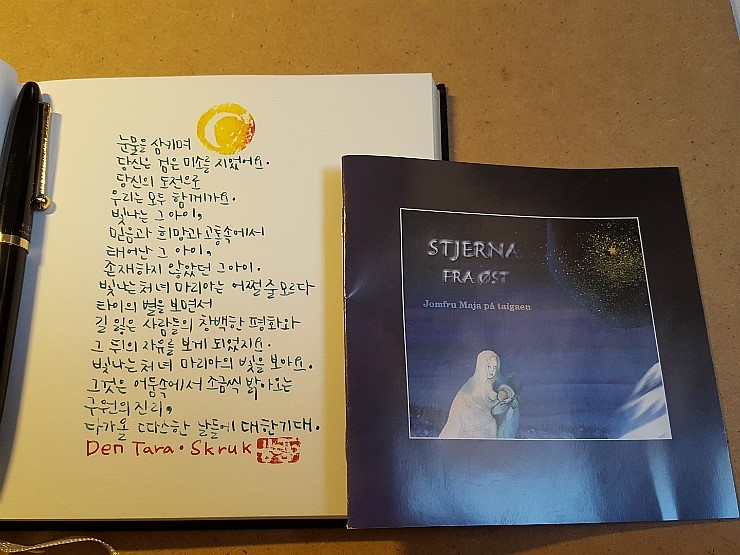 눈물을 삼키며
당신은 검은 미소를 지었어요.
당신의 도전으로
우리는 모두 함께가요.
빛나는 그 아이,
믿음과 희망과 고통속에서
태어난 그 아이,
존재하지 않았던 그아이.
빛나는 처녀 마리아는 어쩔줄 모르다
타이의 별을 보면서
길 잃은 사람들의 창백한 평화와
그 뒤의 자유를 보게 되었지요.
빛나는 처녀 마리아의 빛을 보아요.
그것은 어둠속에서 조금씩 밝아오는
구원의 진리,
다가올 따스한 날들에 대한기대.
Den Tara · Skruk
STJERNA
FRA ØST
Jomfru Maja på taigaen